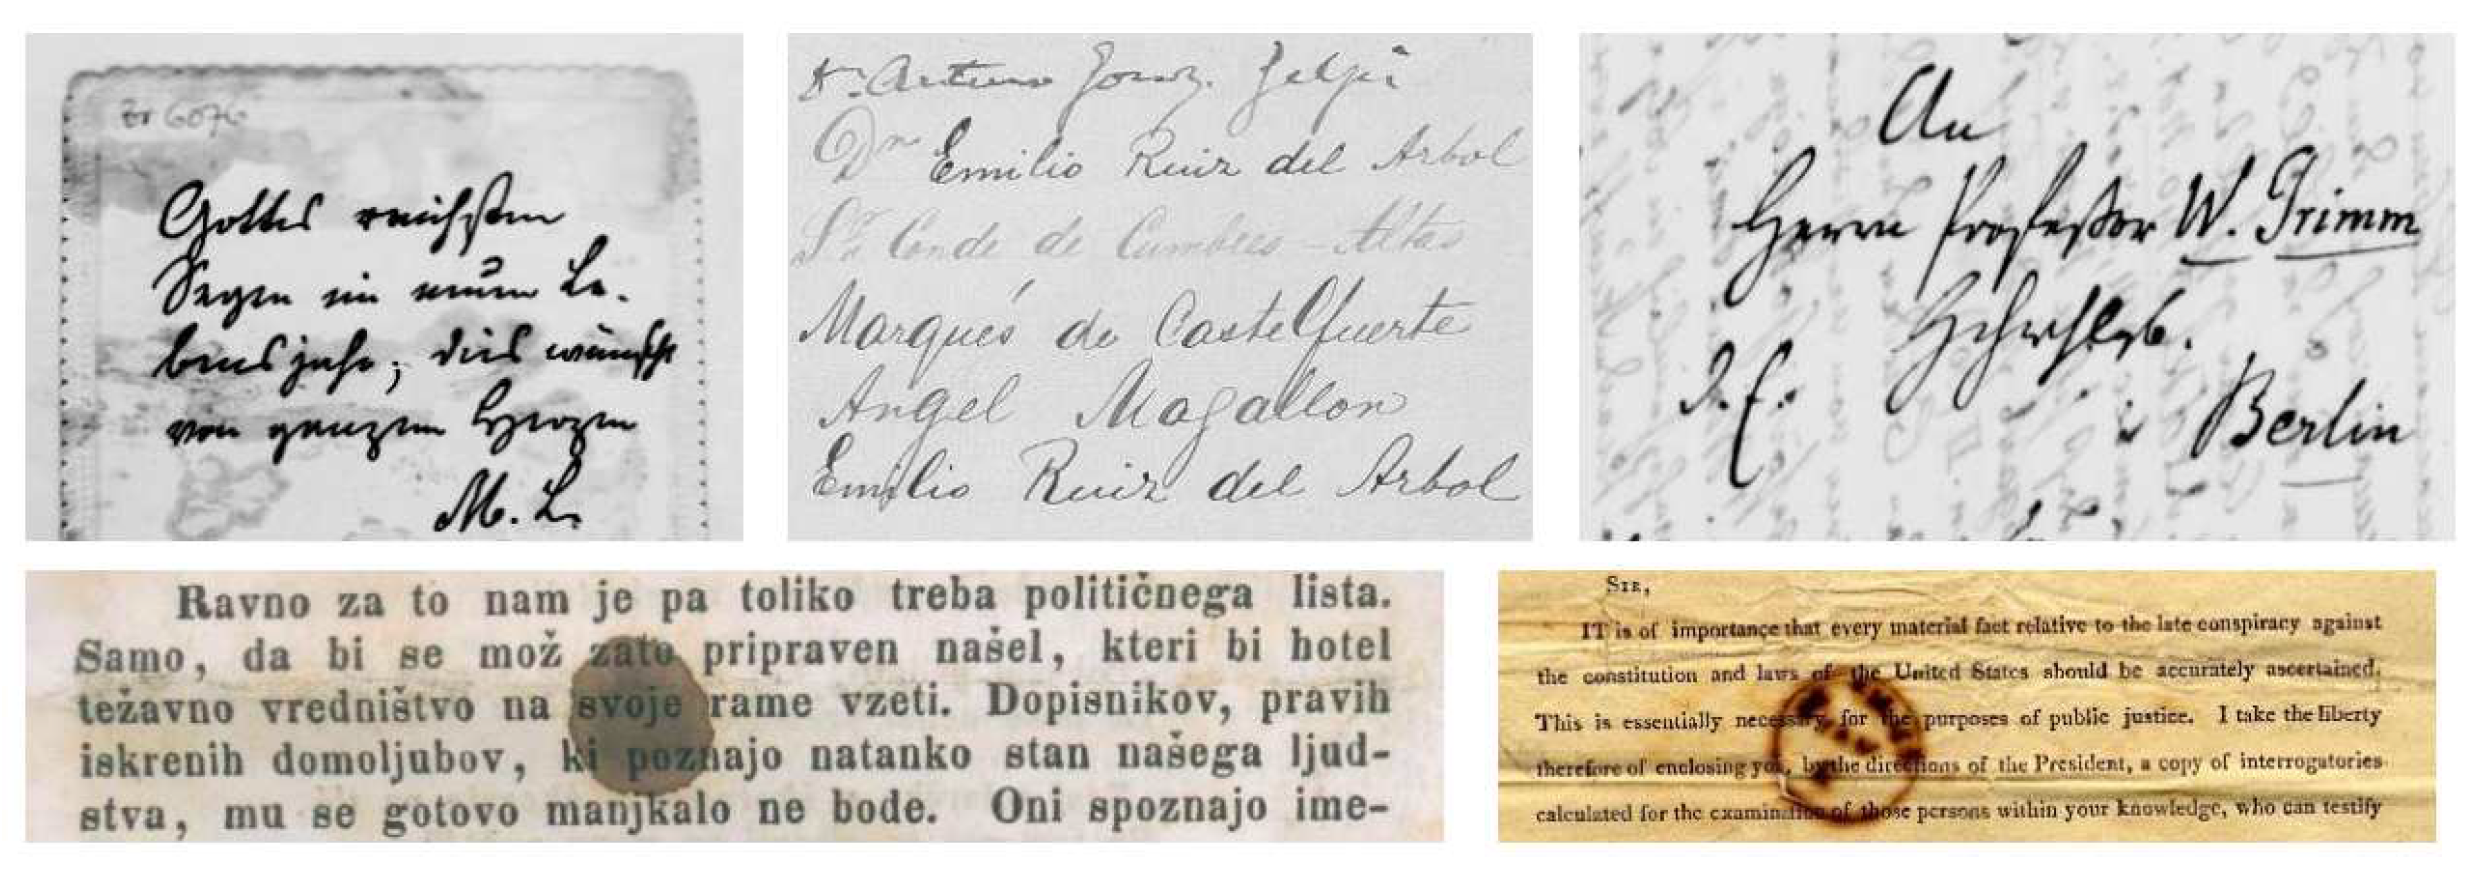 Zr 6076
Gottes reichsten
Segen im neuen Le-
bensjahr, dies wünscht
von ganzem Herzen
M. L.
Dn Arturo Gonz.
Dn Emilio Ruiz del Arbol
Sr. Conde de Cumbres-Altas
Marqués de Castelfuerte
Angel Magallon
Emilio Ruiz del Arbol
An
Herrn Professor W. Grimm
Berlin
Ravno za to nam je pa toliko treba političnega lista.
Samo, da bi se mož zato pripraven našel, kteri bi hotel
težavno vredništvo na svoje rame vzeti. Dopisnikov, pravih
iskrenih domoljubov, ki poznajo natanko stan našega ljud-
stva, mu se gotovo manjkalo ne bode. Oni spoznajo ime-
SIR,
IT is of importance that every material fact relative to the late conspiracy against
the constitution and laws of the United States should be accurately ascertained.
This is essentially necessary for the purposes of public justice. I take the liberty
therefore of enclosing you, by the directions of the President, a copy of interrogatories
calculated for the examination of those persons within your knowledge, who can testify